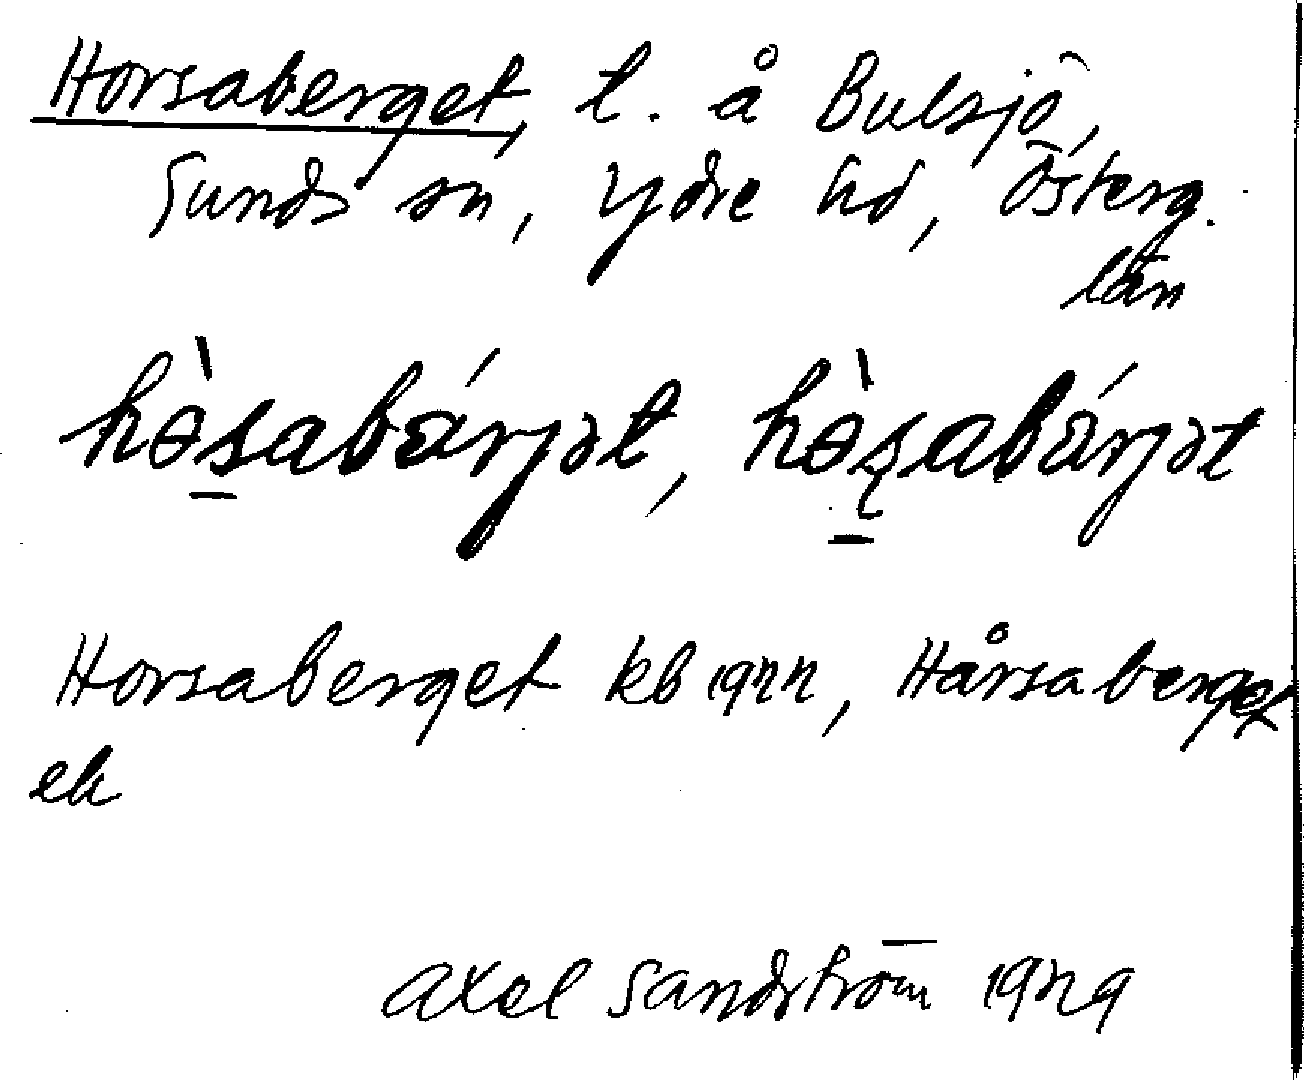 Horsaberget, t. å Bulsjö,
Sunds sn, Ydre hd, Österg.
län
Horsaberget kb 1922, Hårsaberget
ek
Axel Sandström 1929